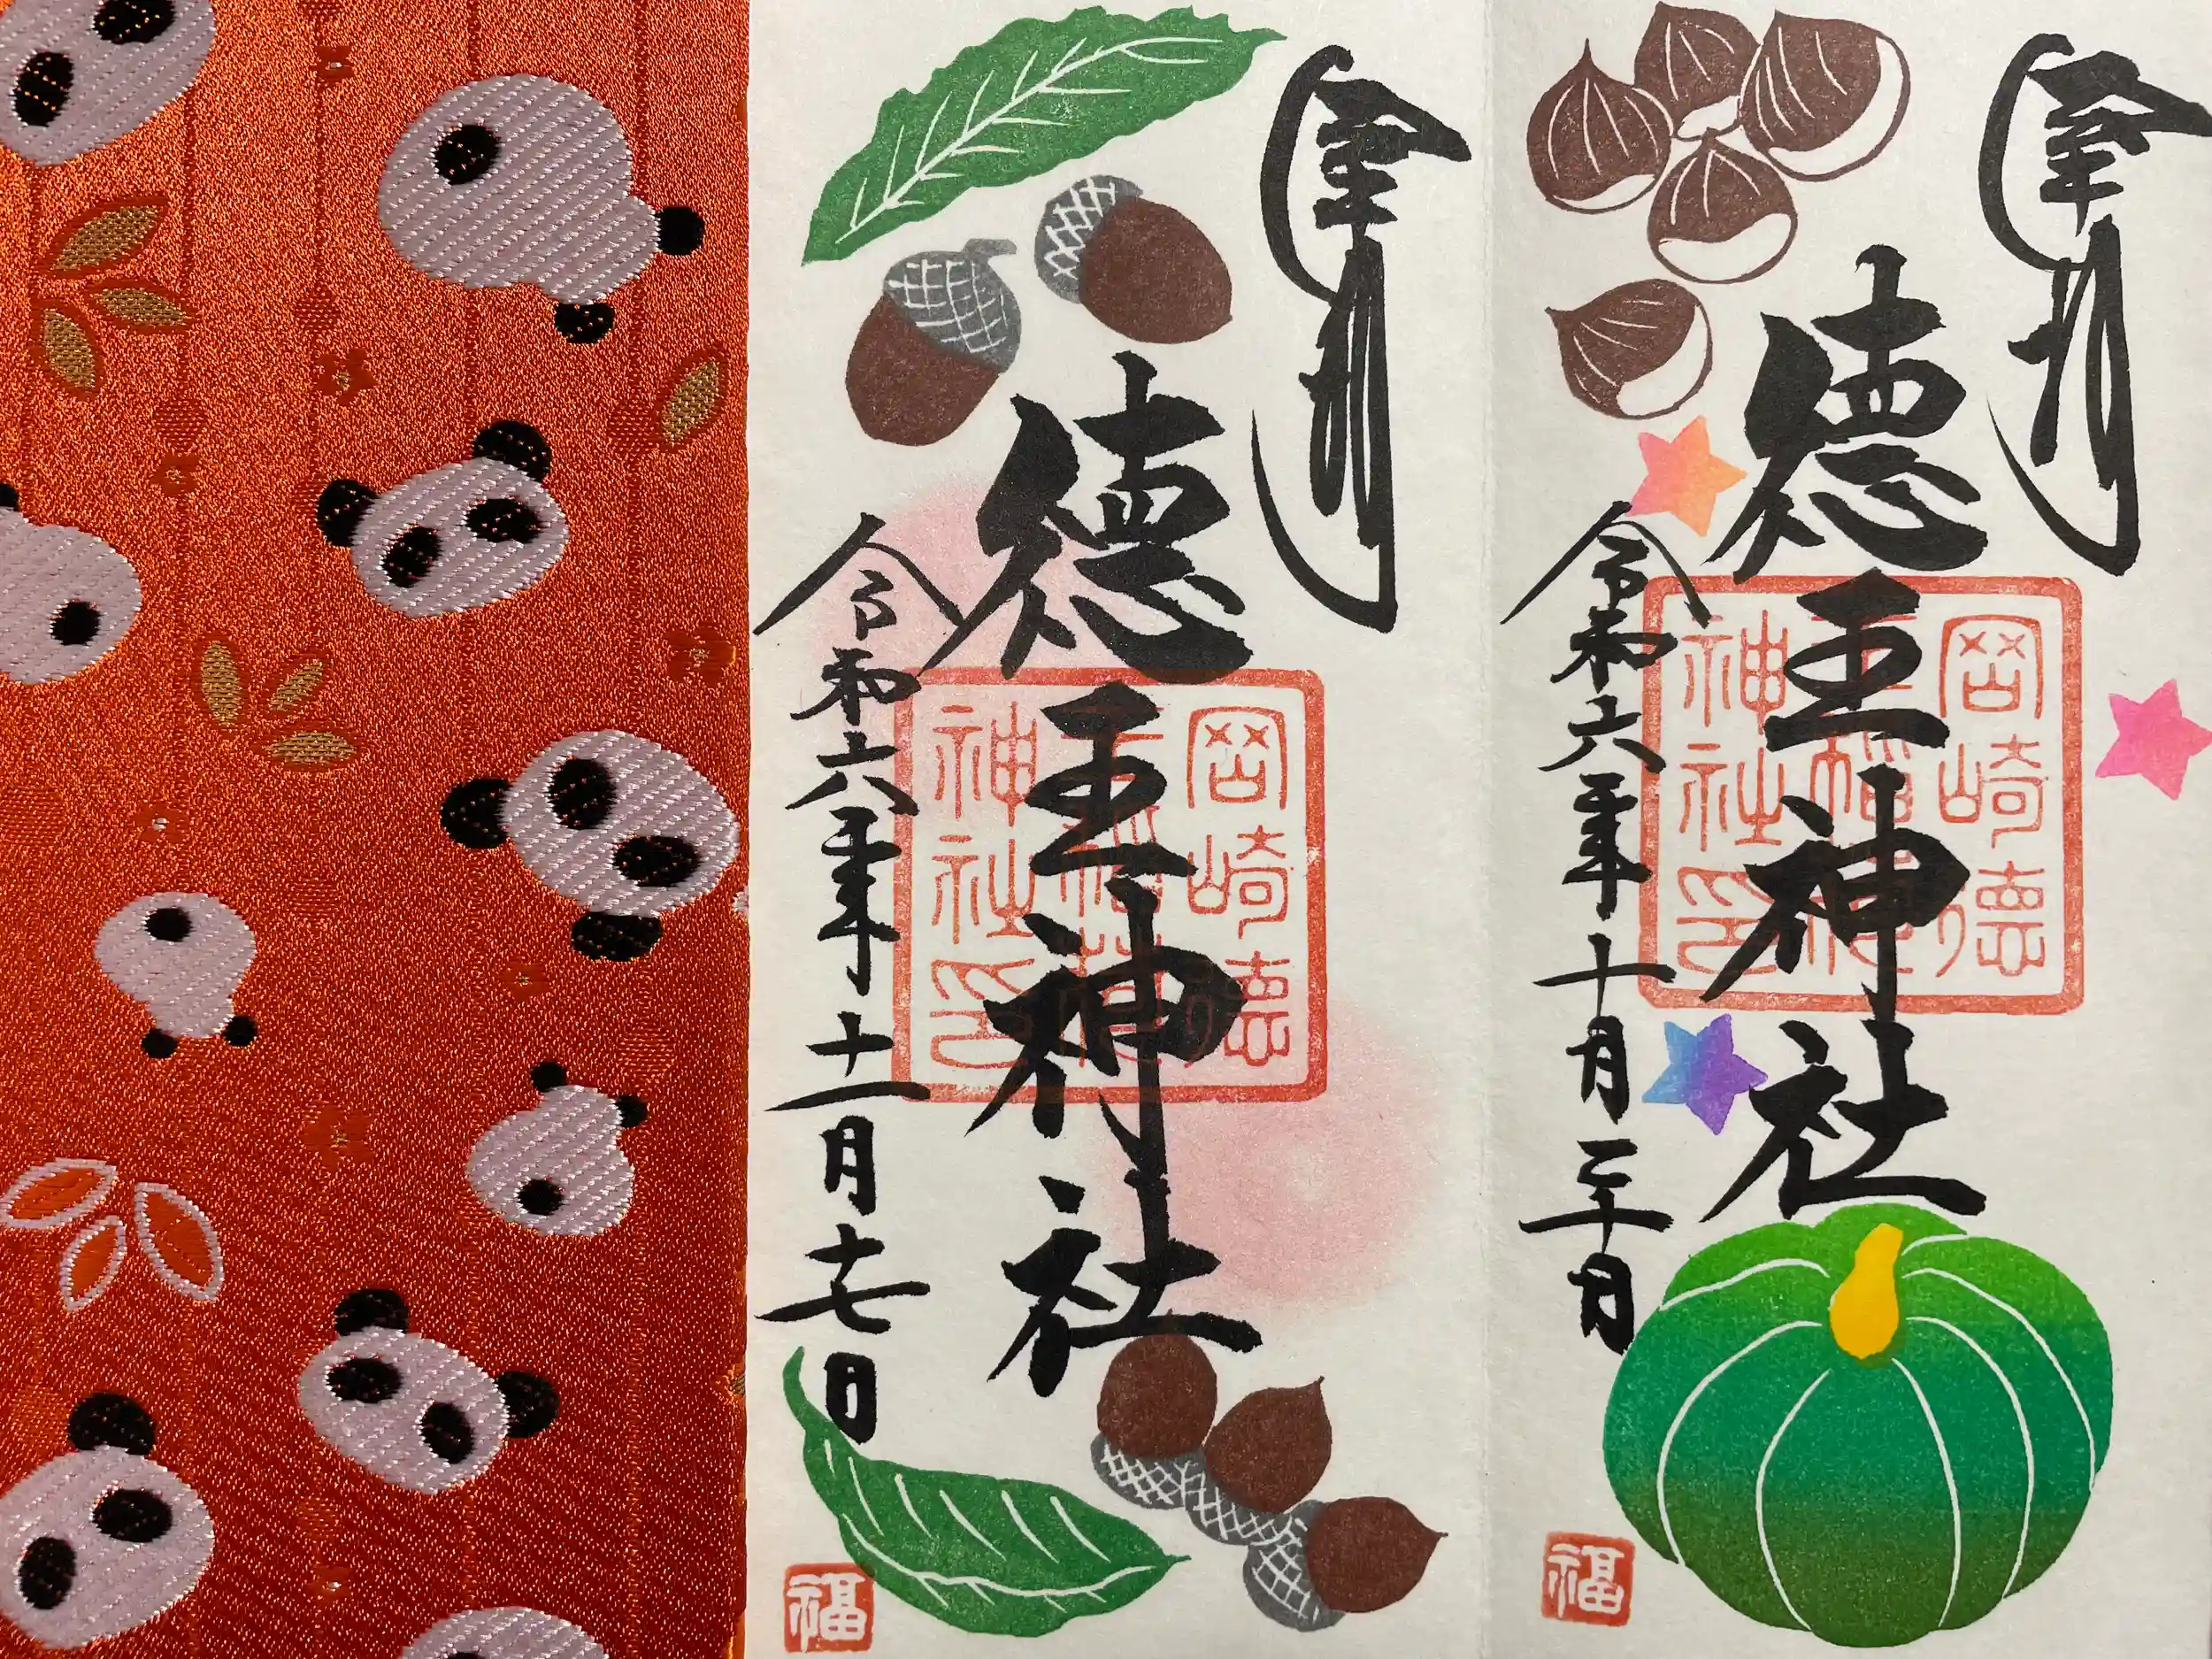 奉拝
徳王神社
令和六年十月三十日
岡崎徳
王稲荷
神社印
福
奉拝
徳王神社
令和六年十一月十七日
岡崎徳
王稲荷
神社印
福